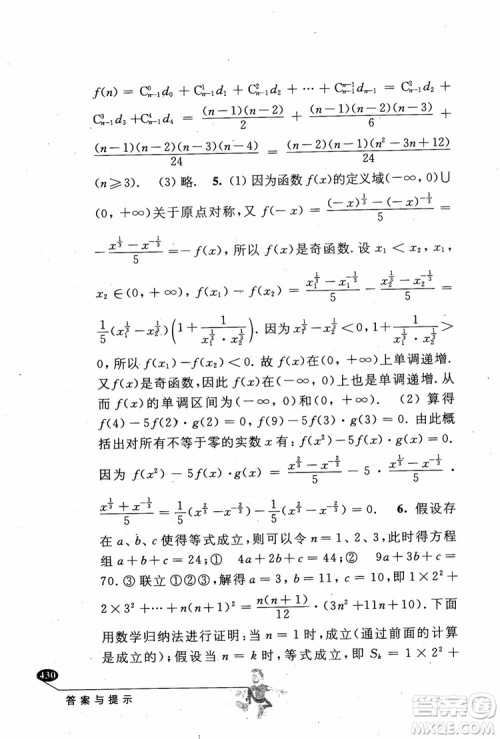 f(n) = C⁰ₙ₋₁d₀ + C¹ₙ₋₁d₁ + C²ₙ₋₁d₂ + ⋯ + Cⁿ⁻¹ₙ₋₁dₙ₋₁ = C²ₙ₋₁d₂ +
C³ₙ₋₁d₃ + C⁴ₙ₋₁d₄ = (n-1)(n-2)/2 + (n-1)(n-2)(n-3)/6 +
(n-1)(n-2)(n-3)(n-4)/24 = (n-1)(n-2)(n²-3n+12)/24
(n≥3). (3) 略. 5. (1) 因为函数 f(x)的定义域(-∞, 0)∪
(0, +∞)关于原点对称, 又 f(-x) = ((-x)^{1/3} - (-x)^{-1/3})/5 =
-(x^{1/3} - x^{-1/3})/5 = -f(x), 所以 f(x)是奇函数. 设 x₁ < x₂, x₁,
x₂ ∈ (0, +∞), f(x₁) - f(x₂) = (x₁^{1/3} - x₁^{-1/3})/5 - (x₂^{1/3} - x₂^{-1/3})/5 =
1/5(x₁^{1/3} - x₂^{1/3})(1 + 1/(x₁^{1/3} · x₂^{1/3})). 因为 x₁^{1/3} - x₂^{1/3} < 0, 1 + 1/(x₁^{1/3} · x₂^{1/3}) >
0, 所以 f(x₁) - f(x₂) < 0. 故 f(x)在(0, +∞)上单调递增.
又 f(x)是奇函数, 所以 f(x)在(-∞, 0)上也单调递增.
故 f(x)的单调区间为(-∞, 0)和(0, +∞). (2) 算得
f(4) - 5f(2)·g(2) = 0, f(9) - 5f(3)·g(3) = 0. 由此概
括出对所有不等于零的实数 x 有: f(x²) - 5f(x)·g(x) = 0.
因为 f(x²) - 5f(x)·g(x) = (x^{2/3} - x^{-2/3})/5 - 5·(x^{1/3} - x^{-1/3})/5·
(x^{1/3} + x^{-1/3})/5 = 1/5(x^{2/3} - x^{-2/3}) - 1/5(x^{2/3} - x^{-2/3}) = 0. 6. 假设存
在 a、b、c 使得等式成立, 则可以令 n = 1、2、3, 由此得方程
组 a+b+c = 24. ① 4a+2b+c = 44. ② 9a+3b+c =
70. ③ 联立①②③, 解得 a = 3, b = 11, c = 10, 即 1×2² +
2×3² + ⋯ + n(n+1)² = n(n+1)/12·(3n² + 11n + 10). 下面
用数学归纳法进行证明: 当 n = 1, 成立(通过前面的计算
是成立的); 假设当 n = k 时, 等式成立, 即 Sₖ = 1×2² +
430
答案与提示